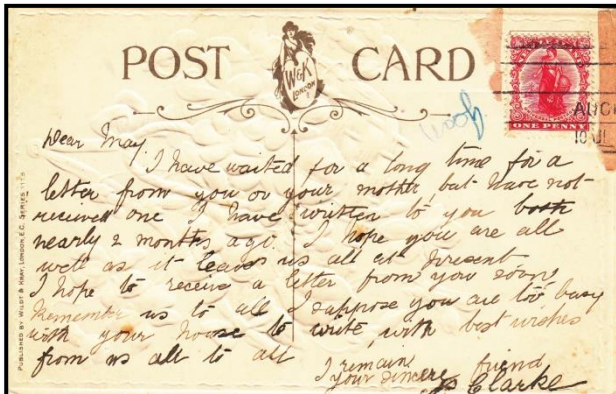 POST CARD
W&K
LONDON
ONE PENNY
AUC
10 JU
Dear May.
I have waited for a long time for a
letter from you or your mother but have not
received one I have written to you both
nearly 2 months ago. I hope you are all
well as it leaves us all at present
I hope to receive a letter from you soon
Remember us to all I suppose you are too busy
with your house to write, with best wishes
from us all to all
I remain
your sincere friend
Clarke
PUBLISHED BY WILDT & KRAY, LONDON, E.C. SERIES